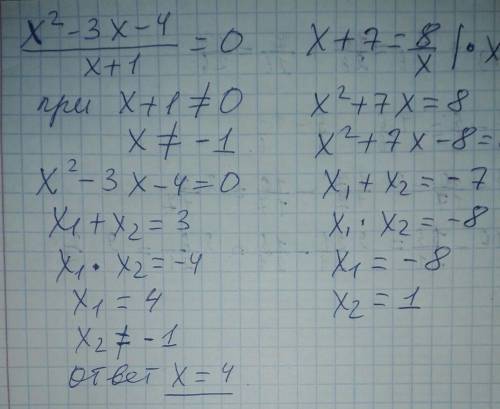 x² - 3x - 4 / x + 1 = 0
при x + 1 ≠ 0
x ≠ -1
x² - 3x - 4 = 0
x₁ + x₂ = 3
x₁ · x₂ = -4
x₁ = 4
x₂ ≠ -1
ответ x = 4
x + 7 = 8/x | · x
x² + 7x = 8
x² + 7x - 8 =
x₁ + x₂ = -7
x₁ · x₂ = -8
x₁ = -8
x₂ = 1